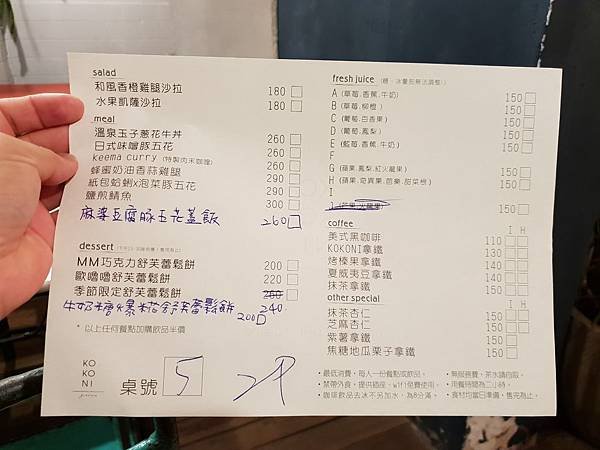 salad
和風香橙雞腿沙拉 180 □
水果凱薩沙拉 180 □
meal
溫泉玉子蔥花牛丼
日式味噌豚五花 260 □
keema curry (特製肉末咖哩) 260 □
蜂蜜奶油香蒜雞腿 290 □
紙包蛤蜊x泡菜豚五花 290 □
鹽煎鯖魚 300 □
麻婆豆腐豚五花蓋飯 260 □
dessert
MM巧克力舒芙蕾鬆餅 200 □
歐嚕嚕舒芙蕾鬆餅 220 □
季節限定舒芙蕾鬆餅 260 □
240
牛奶糖爆米花舒芙蕾鬆餅 200 □
* 以上任何餐點加購飲品半價
KO
KO
NI
桌號 5
29
fresh juice
A (草莓.香蕉.牛奶) 150 □
B (草莓.柳橙) 150 □
C (葡萄.百香果) 150 □
D (葡萄.鳳梨) 150 □
E (藍莓.香蕉.牛奶) 150 □
F
G (蘋果.鳳梨.紅火龍果) 150 □
H (蘋果.奇異果.芭樂.甜菜根) 150 □
I
150 □
coffee I H
美式黑咖啡 110 □□
KOKONI拿鐵 130 □□
烤榛果拿鐵 140 □□
夏威夷豆拿鐵 140 □□
抹茶拿鐵 150 □□
other special I H
抹茶杏仁 150 □□
芝麻杏仁 150 □□
紫薯拿鐵 150 □
焦糖地瓜栗子拿鐵 150 □
•最低消費，每人一份餐點或飲品。 •無服務費、茶水請自取。
•禁帶外食，提供插座、wifi免費使用。 •用餐時間為二小時。
•咖啡飲品去冰不另加水，為8分滿。 •食材均當日準備，售完為止。